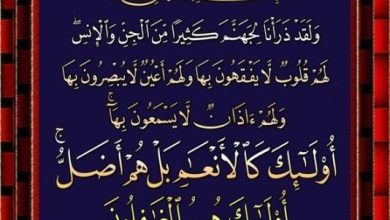 وَلَقَدْ ذَرَأْنَا لِجَهَنَّمَ كَثِيرًا مِّنَ ٱلْجِنِّ وَٱلْإِنسِ ۖ
لَهُمْ قُلُوبٌ لَّا يَفْقَهُونَ بِهَا وَلَهُمْ أَعْيُنٌ لَّا يُبْصِرُونَ بِهَا
وَلَهُمْ ءَاذَانٌ لَّا يَسْمَعُونَ بِهَآ ۚ
أُو۟لَـٰٓئِكَ كَٱلْأَنْعَـٰمِ بَلْ هُمْ أَضَلُّ ۚ
أُو۟لَـٰٓئِكَ هُمُ ٱلْغَـٰفِلُونَ